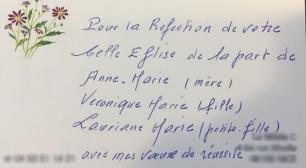 Pour la Réfection de votre
belle Eglise de la part de
Anne-Marie (mère)
Veronique Marie (fille)
Lauriane Marie (petite-fille)
avec mes vœux de réussite